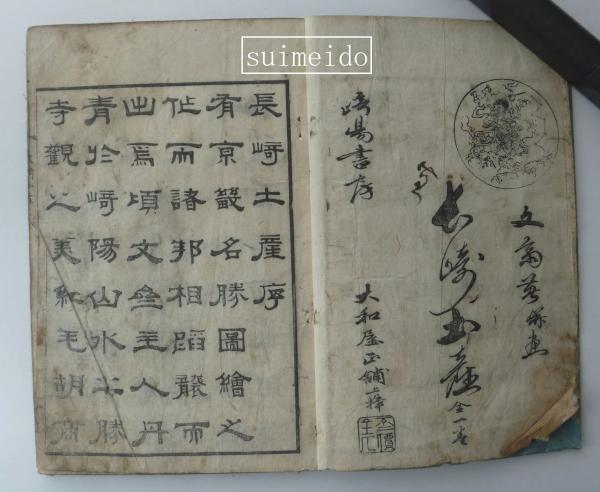 suimeido
文齋
長崎土産 全一巻
崎陽書房
大和屋正舗上梓
長﨑土産序
有京畿名勝圖繪之
作而諸邦相蹈襲而
出焉頃文𠫼主人丹
青於﨑陽山水之勝
寺觀之美紅毛胡商